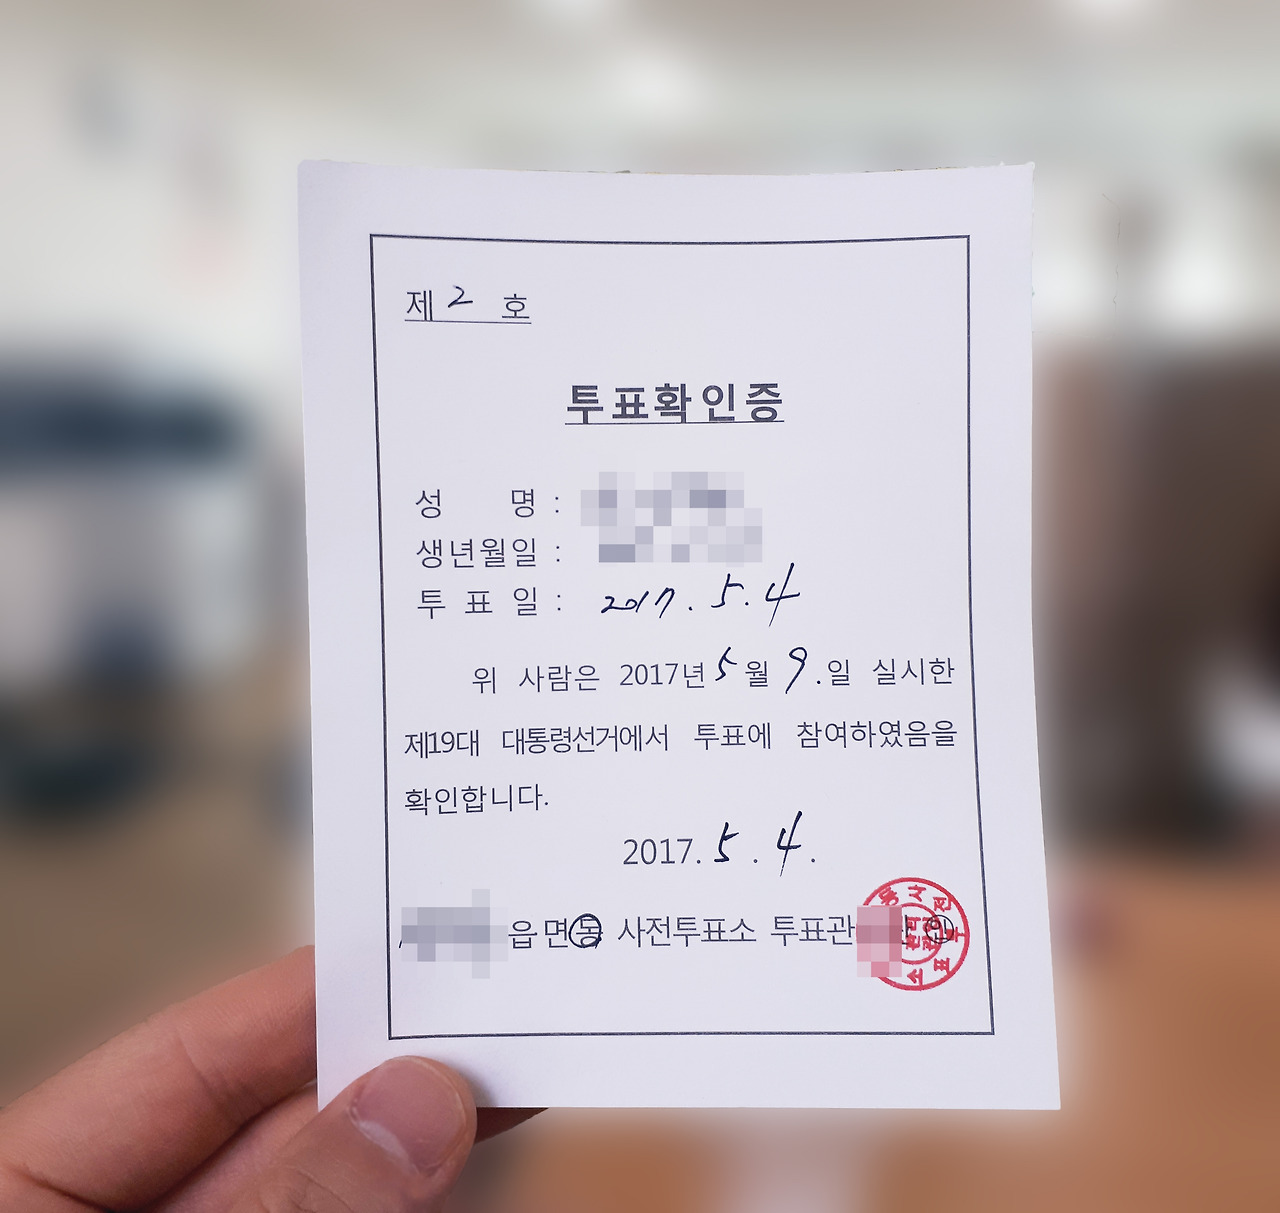 제 2 호
투표확인증
성 명 :
생년월일 :
투 표 일 : 2017. 5. 4
위 사람은 2017년 5월 9.일 실시한
제19대 대통령선거에서 투표에 참여하였음을
확인합니다.
2017. 5. 4.
읍 면 동 사전투표소 투표관